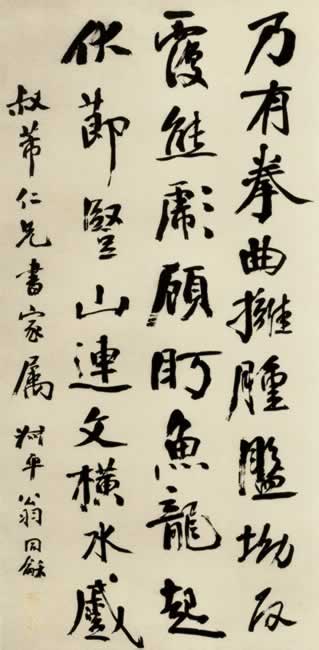 乃有拳曲擁腫盤坳反
覆熊彪顧盼魚龍起
伏節豎山連文橫水蹙
叔芾仁兄書家属 叔平翁同龢